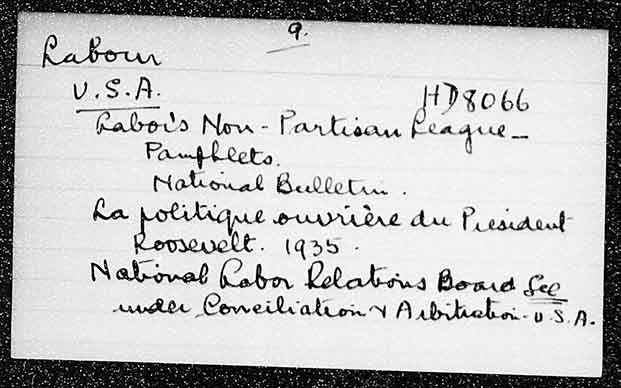 9.
Labour
U.S.A.
HD8066
Labor's Non-Partisan League—
Pamphlets.
National Bulletin.
La politique ouvrière du President
Roosevelt. 1935.
National Labor Relations Board See
under Conciliation & Arbitration - U.S.A.